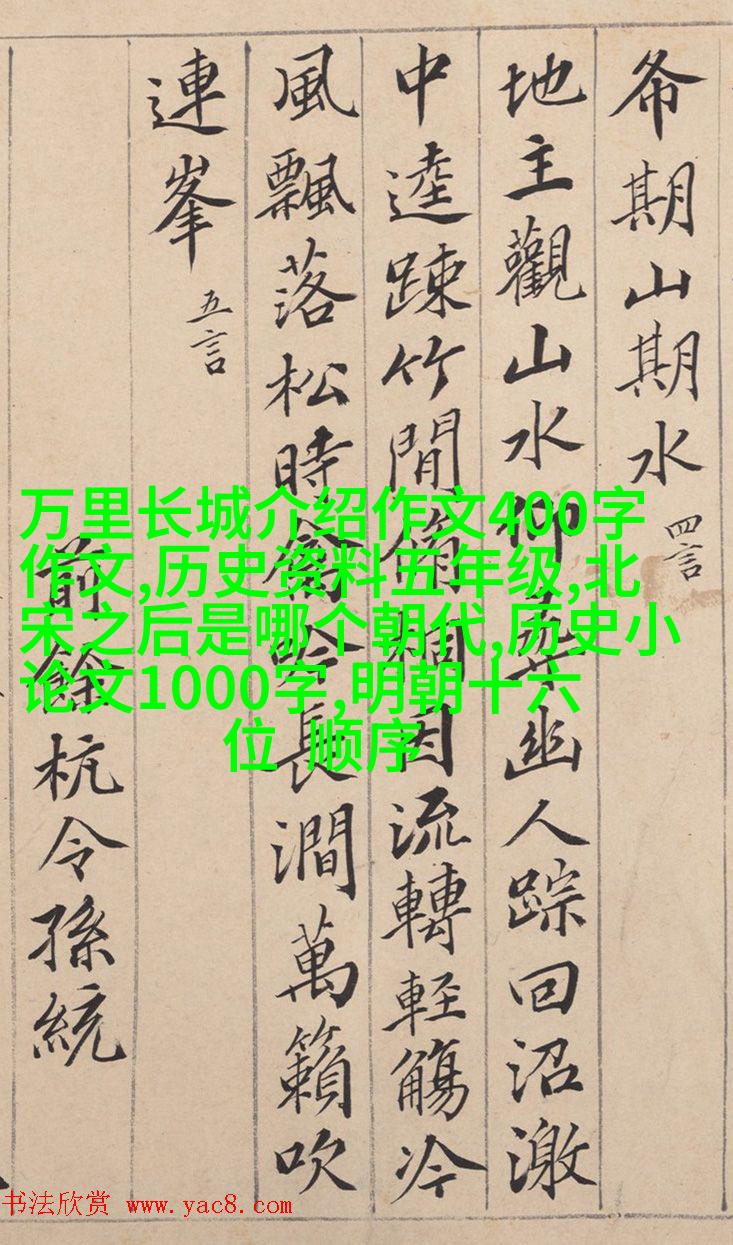 希期山期水 四言
地主觀山水仰尋幽人踪回沼激
中逵踈竹間脩桐因流轉輕觴冷
風飄落松時禽吟長澗萬籟吹
連峯 五言
前餘杭令孫統
万里长城介绍作文400字
作文,历史资料五年级,北
宋之后是哪个朝代,历史小
论文1000字,明朝十六
位 顺序
书法欣赏 www.yac8.com